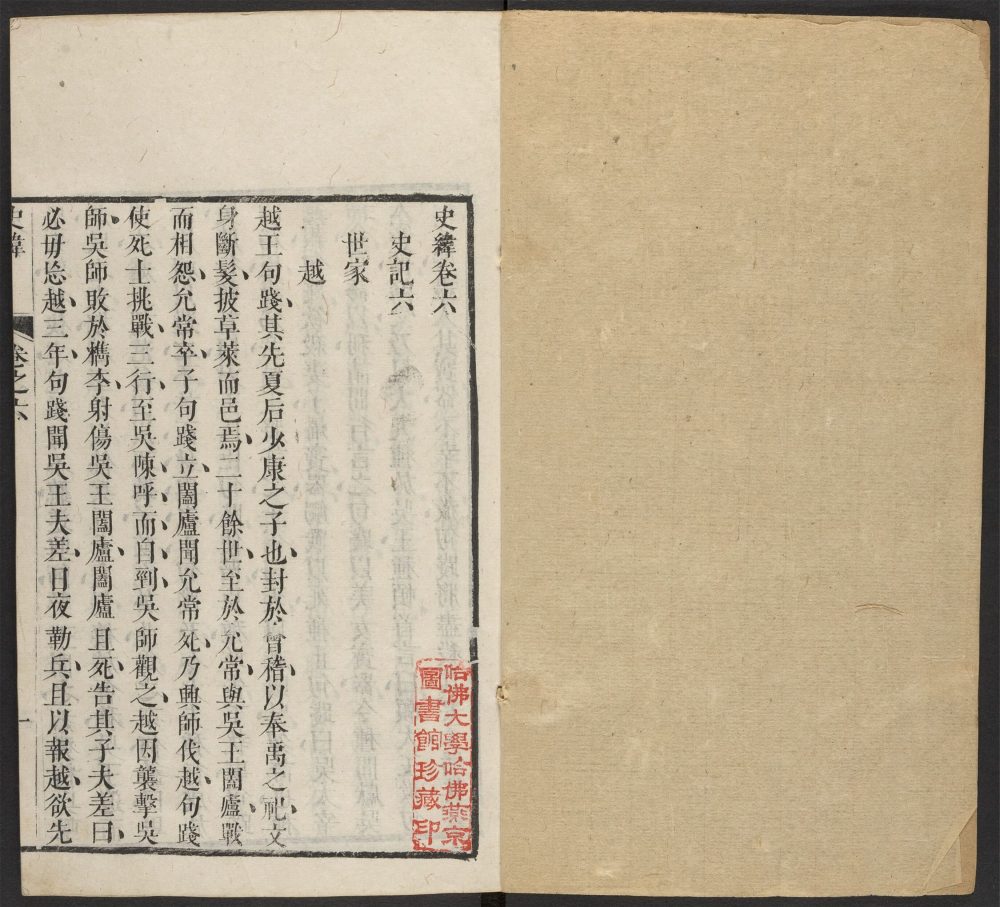 史緯卷六
史記六
世家
越
越王句踐其先夏后少康之子也封於會稽以奉禹之祀文
身斷髮披草萊而邑焉二十餘世至於允常與吳王闔廬戰
而相怨允常卒子句踐立闔廬聞允常死乃興師伐越句踐
使死士挑戰三行至吳陳呼而自剄吳師觀之越因襲擊吳
師吳師敗於檇李射傷吳王闔廬闔廬且死告其子夫差曰
必毋忘越三年句踐聞吳王夫差日夜勒兵且以報越欲先
史緯
卷之六
一
哈佛大學哈佛燕京
圖書館珍藏印